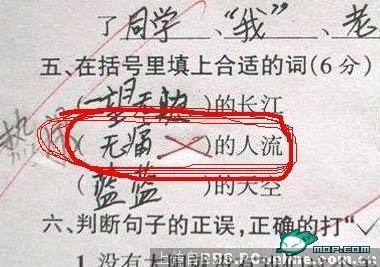 了同学、“我”、老
五、在括号里填上合适的词(6分)
(一望无)的长江
(无痛)的人流
(蓝蓝)的天空
六、判断句子的正误，正确的打“√
1.没有
上传自BBS.PConline.com.cn
MOP.COM